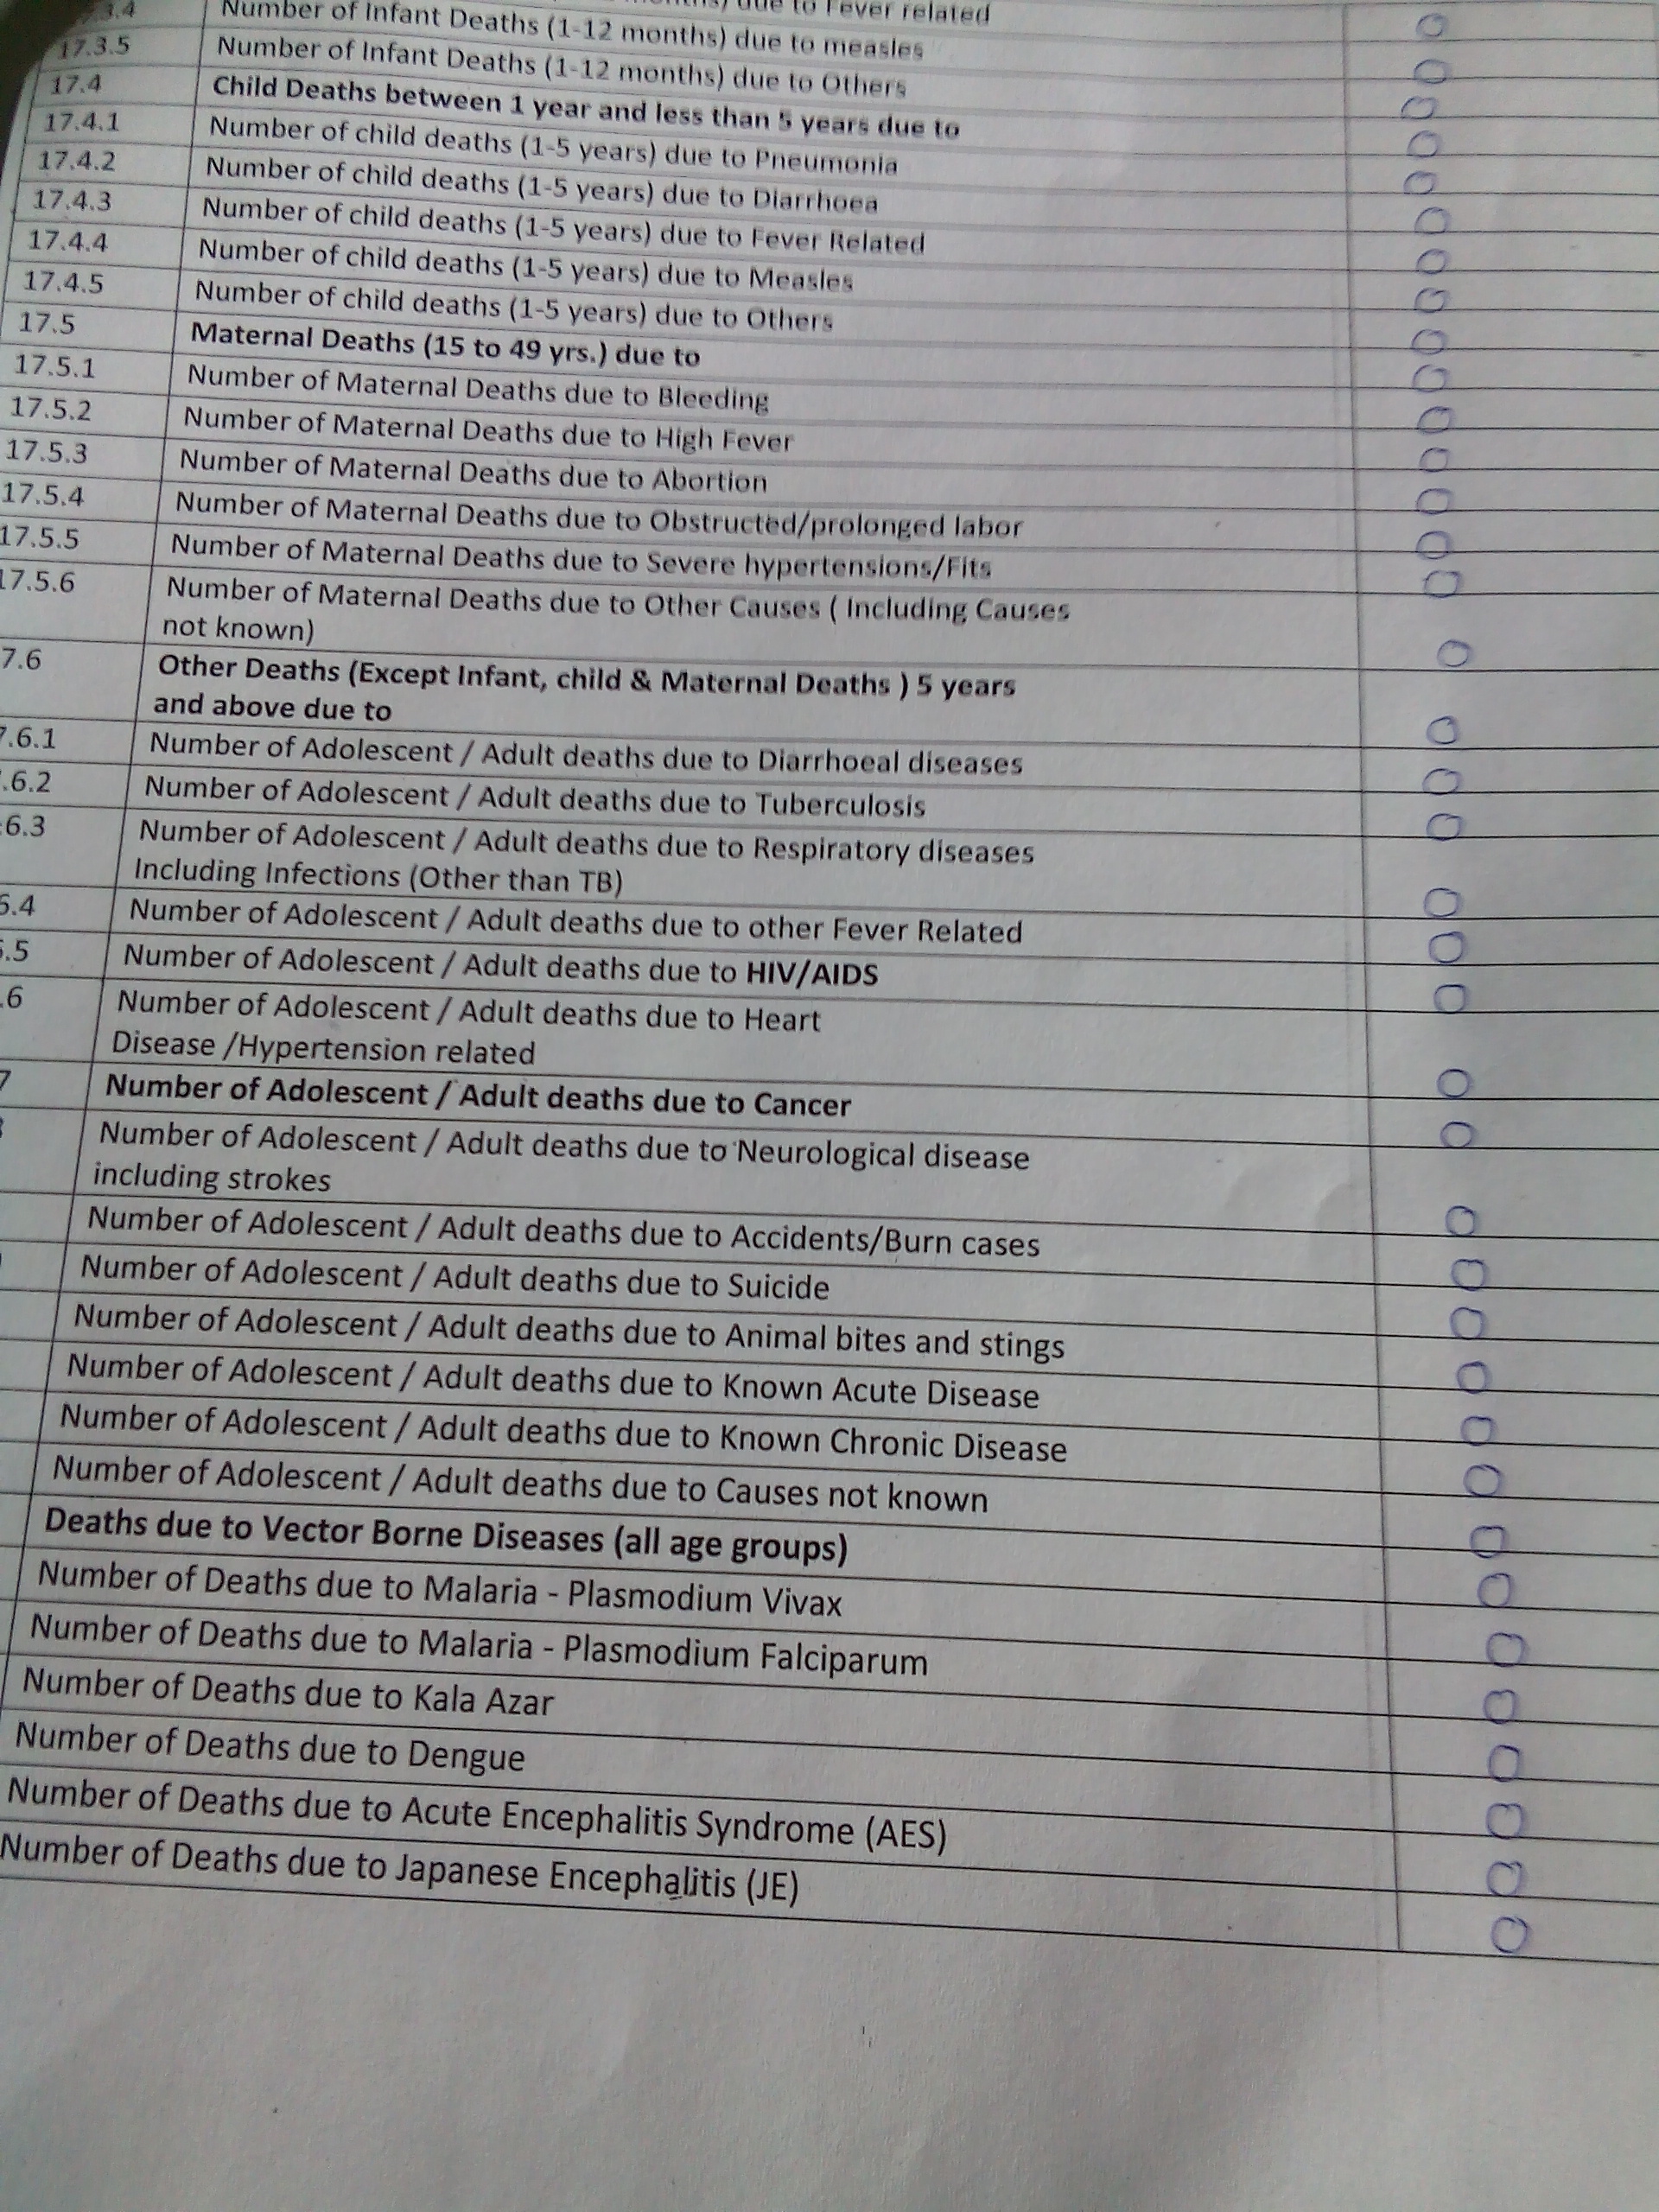 due to Fever related 0
3.4 Number of Infant Deaths (1-12 months) due to measles 0
17.3.5 Number of Infant Deaths (1-12 months) due to Others 0
17.4 Child Deaths between 1 year and less than 5 years due to 0
17.4.1 Number of child deaths (1-5 years) due to Pneumonia 0
17.4.2 Number of child deaths (1-5 years) due to Diarrhoea 0
17.4.3 Number of child deaths (1-5 years) due to Fever Related 0
17.4.4 Number of child deaths (1-5 years) due to Measles 0
17.4.5 Number of child deaths (1-5 years) due to Others 0
17.5 Maternal Deaths (15 to 49 yrs.) due to 0
17.5.1 Number of Maternal Deaths due to Bleeding 0
17.5.2 Number of Maternal Deaths due to High Fever 0
17.5.3 Number of Maternal Deaths due to Abortion 0
17.5.4 Number of Maternal Deaths due to Obstructed/prolonged labor 0
17.5.5 Number of Maternal Deaths due to Severe hypertensions/Fits 0
17.5.6 Number of Maternal Deaths due to Other Causes ( Including Causes
not known) 0
7.6 Other Deaths (Except Infant, child & Maternal Deaths ) 5 years
and above due to 0
7.6.1 Number of Adolescent / Adult deaths due to Diarrhoeal diseases 0
.6.2 Number of Adolescent / Adult deaths due to Tuberculosis 0
6.3 Number of Adolescent / Adult deaths due to Respiratory diseases
Including Infections (Other than TB) 0
6.4 Number of Adolescent / Adult deaths due to other Fever Related 0
.5 Number of Adolescent / Adult deaths due to HIV/AIDS 0
.6 Number of Adolescent / Adult deaths due to Heart
Disease /Hypertension related 0
7 Number of Adolescent / Adult deaths due to Cancer 0
Number of Adolescent / Adult deaths due to Neurological disease
including strokes 0
Number of Adolescent / Adult deaths due to Accidents/Burn cases 0
Number of Adolescent / Adult deaths due to Suicide 0
Number of Adolescent / Adult deaths due to Animal bites and stings 0
Number of Adolescent / Adult deaths due to Known Acute Disease 0
Number of Adolescent / Adult deaths due to Known Chronic Disease 0
Number of Adolescent / Adult deaths due to Causes not known 0
Deaths due to Vector Borne Diseases (all age groups) 0
Number of Deaths due to Malaria - Plasmodium Vivax 0
Number of Deaths due to Malaria - Plasmodium Falciparum 0
Number of Deaths due to Kala Azar 0
Number of Deaths due to Dengue 0
Number of Deaths due to Acute Encephalitis Syndrome (AES) 0
Number of Deaths due to Japanese Encephalitis (JE) 0